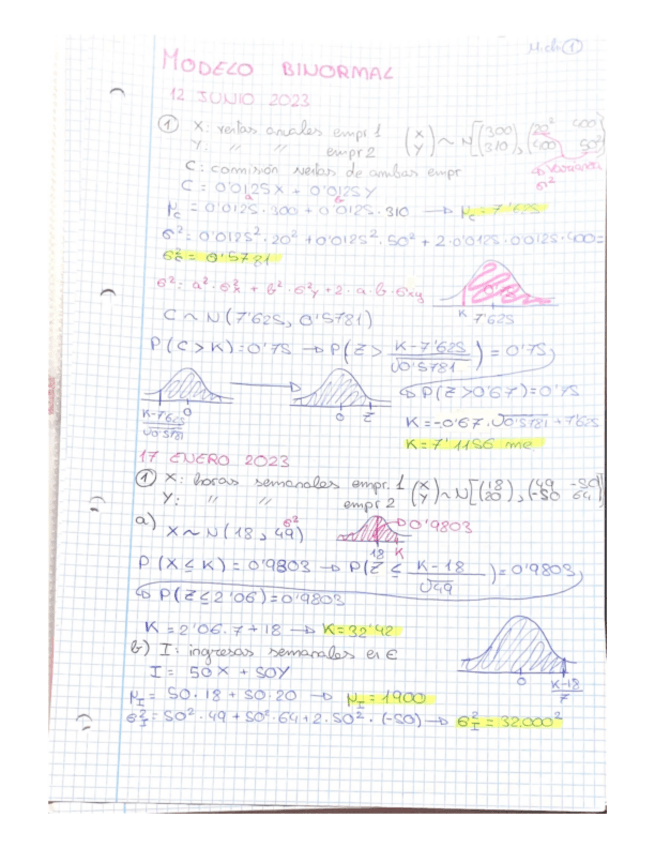 MODELO BINORMAL
12 JUNIO 2023
① X: ventas anuales empr 1 (X Y) ~ N[(300 310), (20² 400 400 50²)]
Y: " " empr 2
Varianza σ²
C: comisión ventas de ambas empr
C = 0'0125X + 0'0125Y
a b
μc = 0'0125·300 + 0'0125·310 → μc = 7'625
σ² = 0'0125²·20² + 0'0125²·50² + 2·0'0125·0'0125·400 =
σ²c = 0'5781
σ² = a²·σ²x + b²·σ²y + 2·a·b·σxy
K 7'625
C ~ N(7'625, 0'5781)
P(C > K) = 0'75 → P(Z > K-7'625 / √0'5781) = 0'75
→ P(Z > 0'67) = 0'75
K-7'625 / √0'5781 0 0 Z
K = -0'67·√0'5781 + 7'625
K = 7'1156 me
17 ENERO 2023
① X: horas semanales empr. 1 (X Y) ~ N[(18 20), (49 -50 -50 64)]
Y: " " empr 2
a) X ~ N(18, 49) σ² 0'9803
18 K
P(X ≤ K) = 0'9803 → P(Z ≤ K-18 / √49) = 0'9803
→ P(Z ≤ 2'06) = 0'9803
K = 2'06·7 + 18 → K = 32'42
b) I: ingresos semanales en €
I = 50X + 50Y
0 K-18 / 7
μI = 50·18 + 50·20 → μI = 1900
σ²I = 50²·49 + 50²·64 + 2·50²·(-50) → σ²I = 32.000²